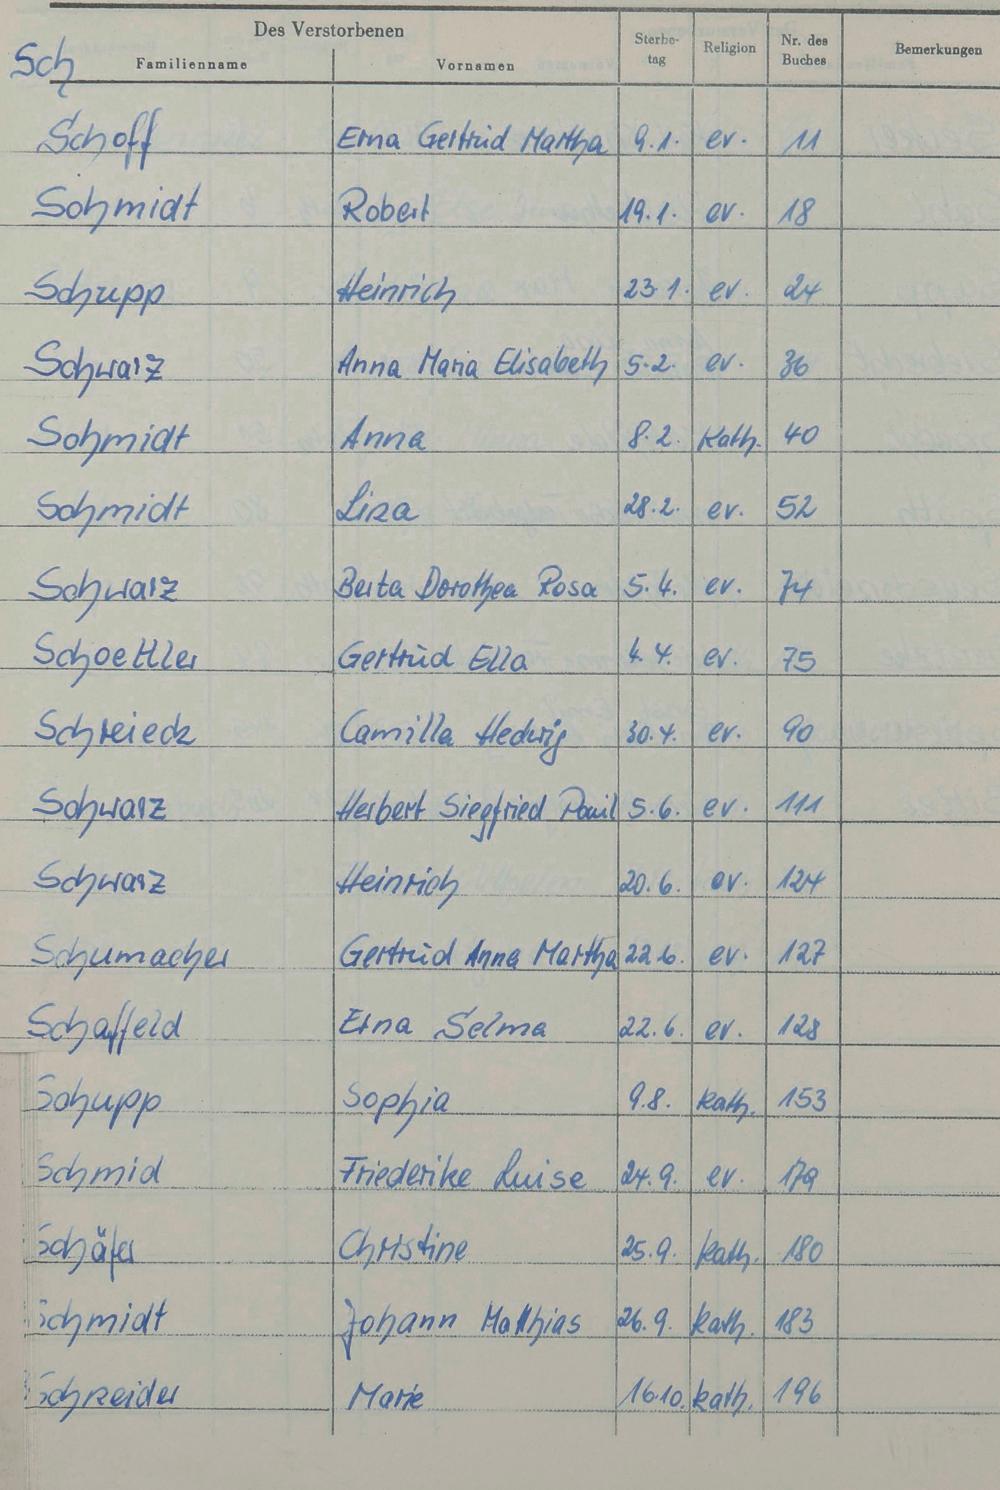 Sch
Des Verstorbenen
Familienname Vornamen Sterbe-tag Religion Nr. des Buches Bemerkungen
Schoff Erna Gertrud Martha 9.1. ev. 11
Schmidt Robert 19.1. ev. 18
Schupp Heinrich 23.1. ev. 24
Schwarz Anna Maria Elisabeth 5.2. ev. 36
Schmidt Anna 8.2. kath. 40
Schmidt Lina 28.2. ev. 52
Schwarz Berta Dorothea Rosa 5.4. ev. 74
Schoettler Gertrud Ella 4.4. ev. 75
Schreieck Camilla Hedwig 30.4. ev. 90
Schwarz Herbert Siegfried Paul 5.6. ev. 111
Schwarz Heinrich 20.6. ev. 124
Schumacher Gertrud Anna Martha 22.6. ev. 127
Schaffeld Erna Selma 22.6. ev. 128
Schupp Sophia 9.8. kath. 153
Schmid Friederike Luise 24.9. ev. 179
Schäfer Christine 25.9. kath. 180
Schmidt Johann Matthias 26.9. kath. 183
Schneider Marie 16.10. kath. 196